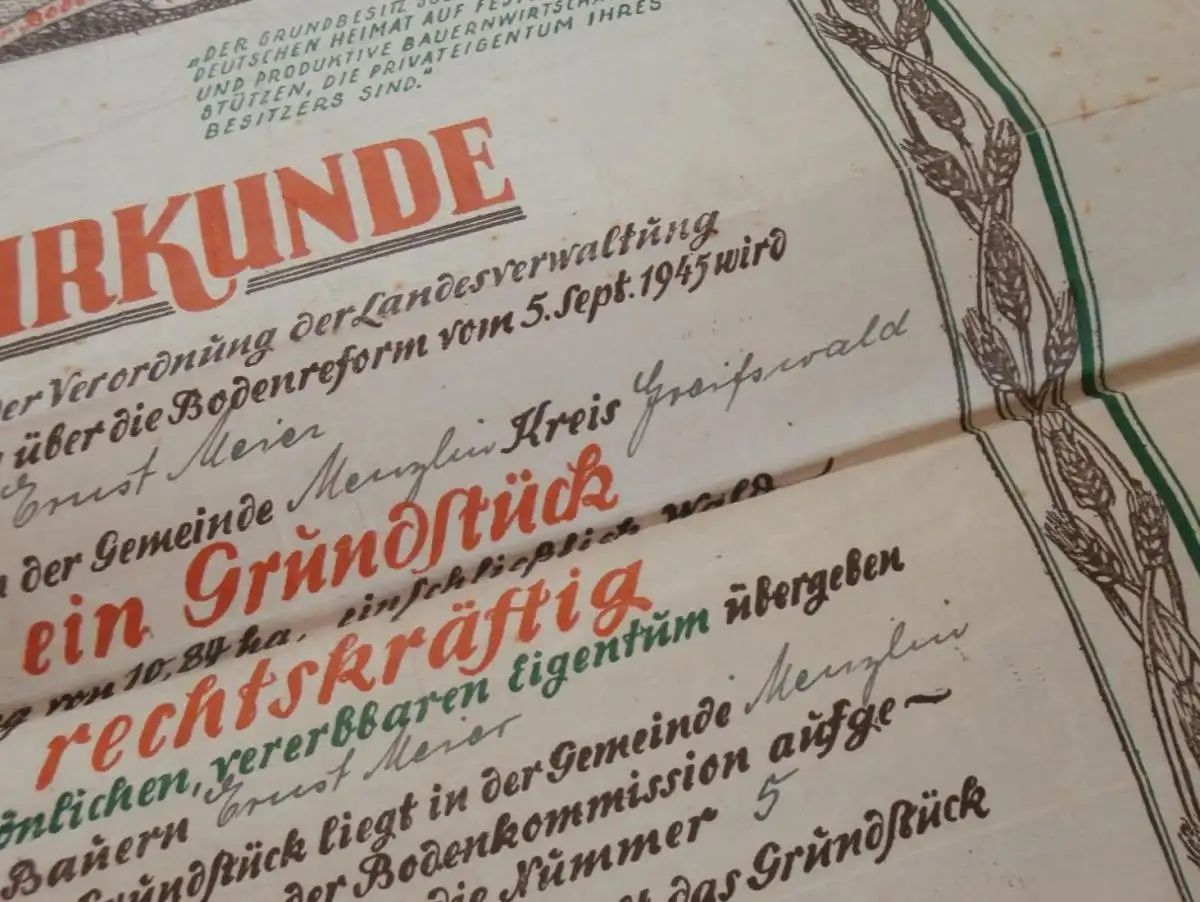 „DER GRUNDBESITZ
DEUTSCHEN HEIMAT AUF
UND PRODUKTIVE
STÜTZEN, DIE PRIVATEIGENTUM IHRES
BESITZERS SIND.“
URKUNDE
der Verordnung der Landesverwaltung
über die Bodenreform vom 5. Sept. 1945 wird
Ernst Meier
der Gemeinde Menzlin Kreis Greifswald
ein Grundstück
von 10,84 ha, einschließlich Wald
rechtskräftig
vererbbaren Eigentum übergeben
Bauern Ernst Meier
Grundstück liegt in der Gemeinde Menzlin
der Bodenkommission aufge-
die Nummer 5
das Grundstück